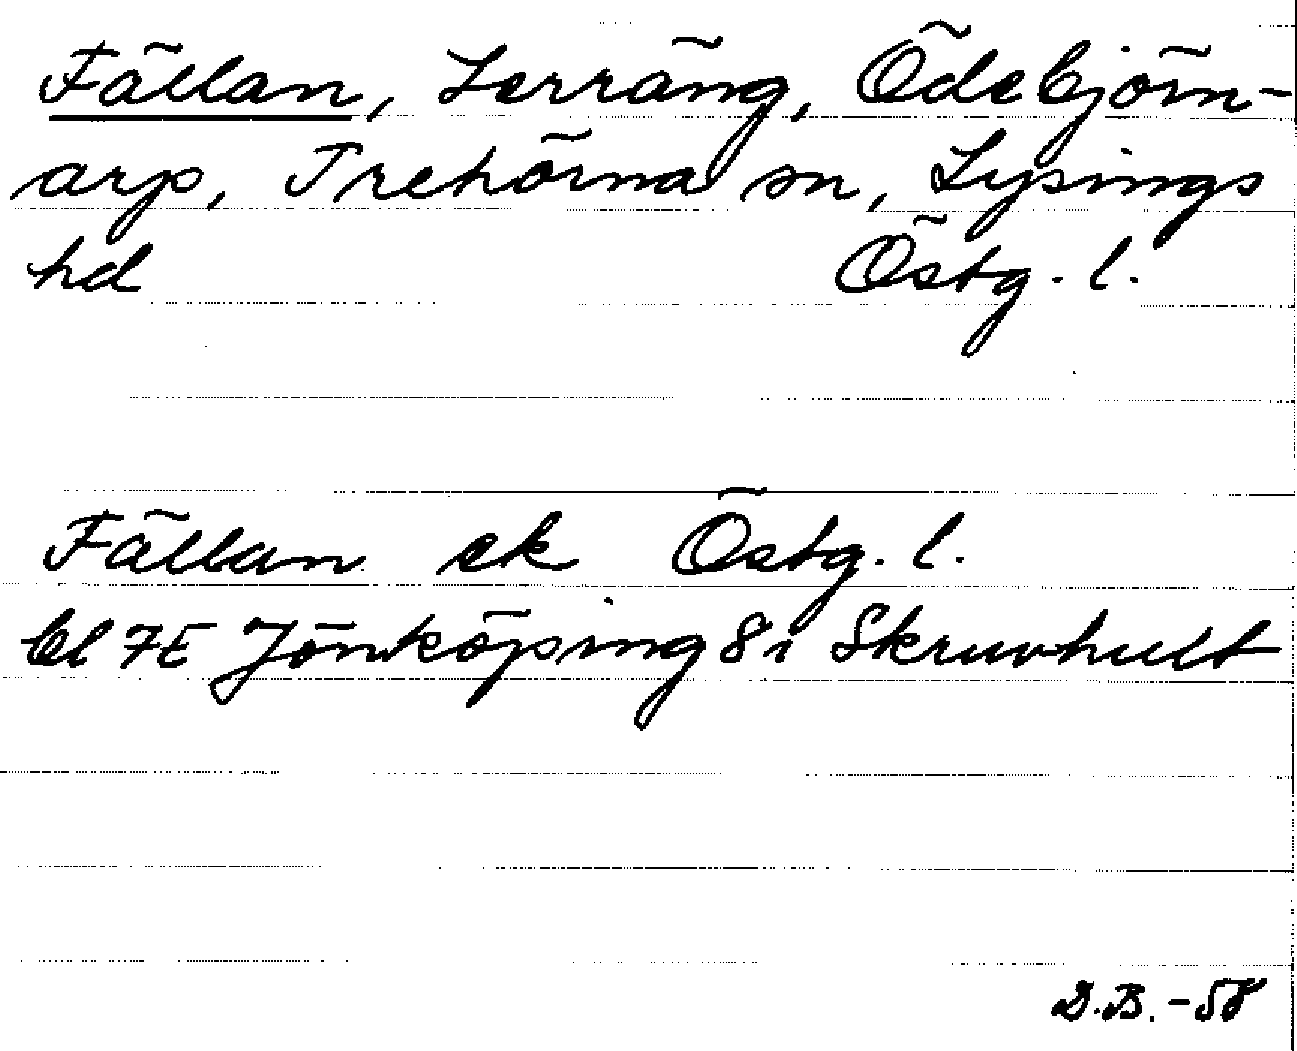 Fällan, Lerräng, Ödebjörn-
arp, Trehörna sn, Lysings
hd Östg. l.
Fällan ek Östg. l.
bl 7E Jönköping 8i Skruvhult
D.B. -58